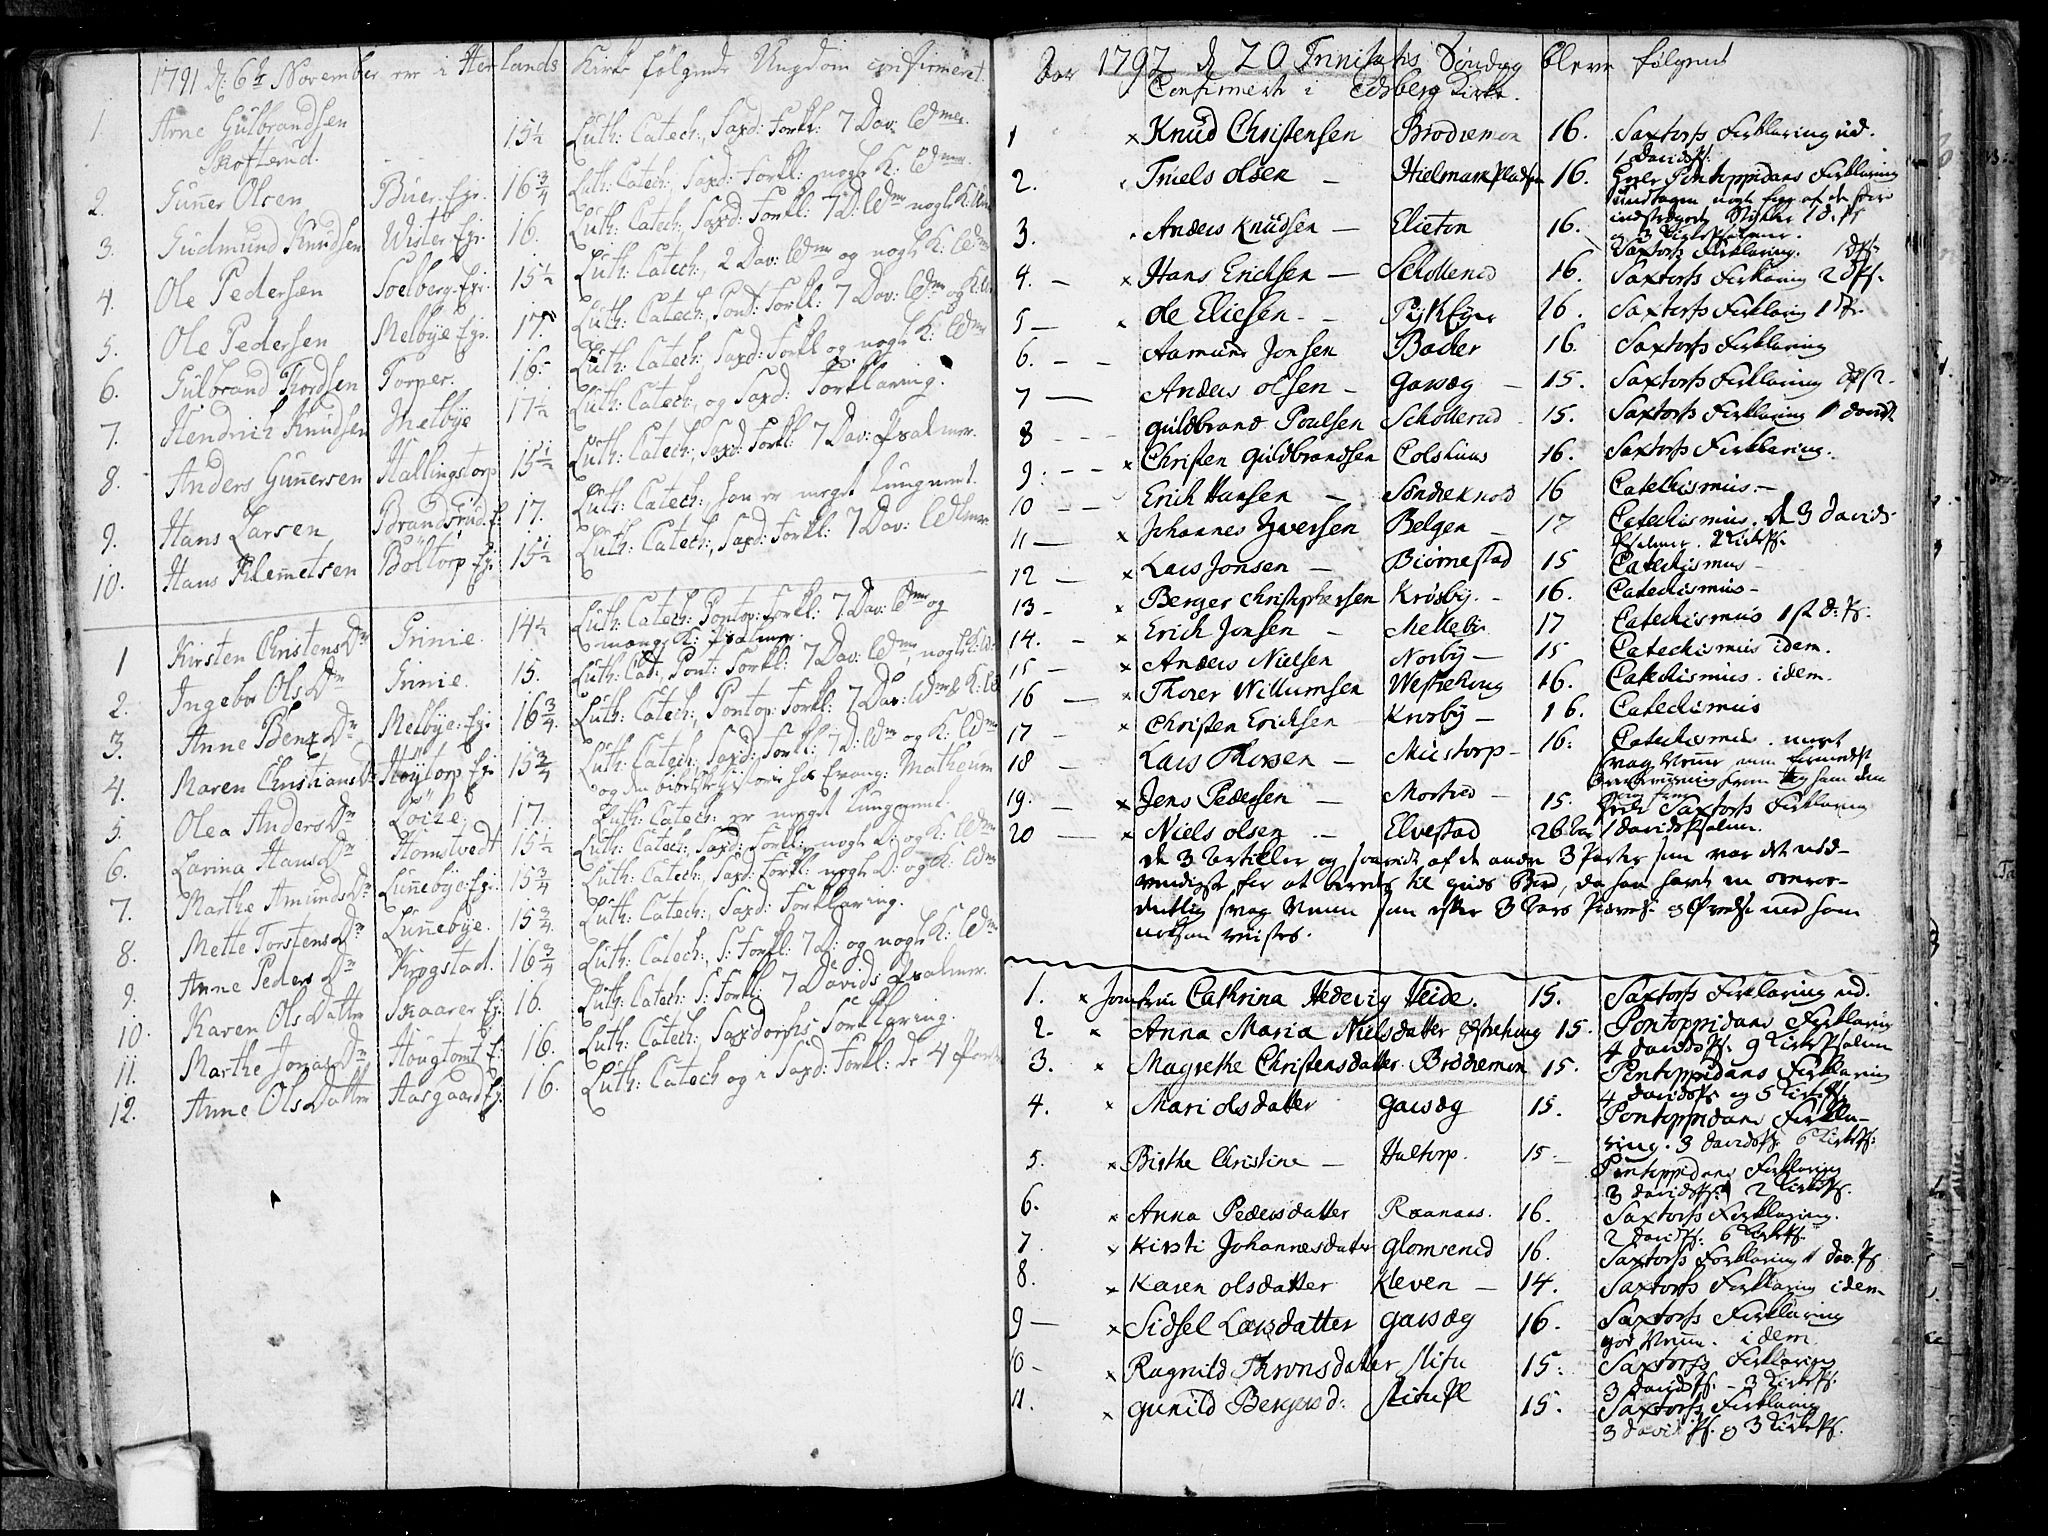 1791 d: 6te November ere i Herlands Kirke følgende Ungdom confirmeret.
1 Arne Gulbrandsen 15½ Luth: Catech:, Saxd: Forkl: 7 Dav:
Skofterud.
2. Gunner Olsen Buer Eje. 16¾ Luth: Catech:, Saxd: Forkl: nogle K:
3. Gudmund Knudsen Wister Eje. 16. Luth: Catech:, Saxd: Forkl: 7 D: nogle K:
4. Ole Pedersen Soelberg Eje. 15½ Luth: Catech:, 2 Dav: og nogle K:
5. Ole Pedersen Melbye Eje. 17. Luth: Catech:, Pont: Forkl: 7 Dav: og K:
6. Gulbrand Thordsen Torper. 16. Luth: Catech:, Saxd: Forkl og nogle K:
7. Hendrich Knudsen Melbye 17½ Luth: Catech:, og Saxd: Forklaring.
8. Anders Gunersen Hallingstorp 15½ Luth: Catech:, Saxd: Forkl: 7 Dav: Psalmer.
9. Hans Larsen Brandsrud E: 17. Luth: Catech:, han er meget tungnemt.
10. Hans Klemetsen Boltorp Eje 15½ Luth: Catech:, Saxd: Forkl: 7 Dav:
1 Kirsten Christens Dr Grinie. 14½ Luth: Catech: Pontop: Forkl: 7 Dav: og
mange K: Psalmer.
2. Ingebor Ols Dr Grinie. 15. Luth: Cat:, Pont: Forkl: 7 Dav: nogle K:
3. Anne Benz Dr Melbye Eje 16¾ Luth: Catech:, Pontop: Forkl: 7 Dav: & K:
4. Maren Christians Dr Høytorp Eje 15¾ Luth: Catech:, Saxd: Forkl: 7 D: og K:
og den Evang: Matheum
5. Olea Anders Dr 17. Luth: Catech: er meget tungnemt.
6. Larina Hans Dr Homstvedt 15½ Luth: Catech:, Saxd: Forkl: nogle D: og K:
7. Marthe Amunds Dr Lunnebye Eje. 15¾ Luth: Catech:, Saxd: Forkl: nogle D: og K:
8. Mette Torstens Dr Lunnebye. 15¾ Luth: Catech:, Saxd: Forklaring.
9. Anne Peders Dr Krogstad. 16¾ Luth: Catech:, S: Forkl: 7 D: og nogle K:
10. Karen Ols Datter Skaarer E: 16. Luth: Catech: S: Forkl: 7 Davids Psalmer.
11. Marthe Jonas Dr Hougtomt E: 16. Luth: Catech: Saxdorphs Forklaring.
12. Anne Ols Datter Aasgaard Eje 16. Luth: Catech og i Saxd: Forkl: de 4 Parter
Aar 1792 d 20 Trinitatis Søndag bleve følgend
Confirmert i Edsberg Kirke.
1 × Knud Christensen Brødremon 16. Saxtorfs Forklaring ud.
1 Davidsps:
2. Truels Olsen – Hielmark Pladsen 16. Pontoppidans Forklaring
undtagen nogle
3. Anders Knudsen – Elieton 16.
og 3 Kirke Psalmer.
Saxtorfs Forklaring. 1 dps.
4. – × Hans Erichsen – Schollerud 16. Saxtorfs Forklaring 2 dps.
5 – × Ole Eliesen – 16. Saxtorfs Forklaring 1 Ps.
6. – – Aamund Jonsen Backer 16. Saxtorfs Forklaring
7 – Anders Olsen – Garsæg – 15. Saxtorfs Forklaring
8 – – – Guldbrand Poulsen Schollerud 15. Saxtorfs Forklaring 1 davids
9. – – × Christen Guldbrandsen Colshuus 16. Saxtorfs Forklaring.
10 – – Erich Hansen – Søndreknold 16 Catechismus –
11 – × Johannes Iwersen Belgen – 17 Catechismus. de 3 davids
Psalmer.
12 – × Lars Jonsen – Biørnestad 15 Catechismus –
13 – × Berger Christophersen Krosby – 16. Catechismus –
14. – × Erich Jonsen – Melleby 17 Catechismus 1 d: Ps.
15 – × Anders Nielsen Norby – 15 Catechismus idem.
16 – × Thorer Willumsen Westreheng 16. Catechismus. idem.
17 – × Christen Erichsen – Krosby – 16. Catechismus
18 – Lars Thorsen – Mustorp – 16: Catechismus. meget
svag
19. – × Jens Pedersen – Morterud – 15. Saxtorfs Forklaring
20 – × Niels Olsen – Elvestad 26 1 Davids Psalm.
de 3 Artikler og af de andre 3 Parter som var det nød-
vendigste for at berede til Guds Bord, da han havde en overor-
dentlig svag Nemme som efter 3 Aars
1. × Jomfru Cathrina Hedevig Heide. 15. Saxtorfs Forklaring ud.
2. × Anna Maria Nielsdatter Østreheng 15. Pontoppidans Forklaring
4 davidsps. 9 Kirkepsalmer
3. × Magrethe Christensdatter Brødremon 15. Pontoppidans Forklaring
4 davidsps og 5 Kirkeps.
4. × Mari Olsdatter Garsæg 15. Pontoppidans Forkla-
ring. 3 davidsps: 6 Kirkeps:
5. × Birthe Christine – Haltorp. 15 – Pontoppidans Forklaring
3 davidsps: 2 Kirkeps.
6. × Anna Pedersdatter Raanaas. 16. Saxtorfs Forklaring.
2 davidsps: 6 Kirkeps.
7 × Kirsti Johannesdatter Glomserud 16. Saxtorfs Forklaring 1 dav. Ps
8. × Karen Olsdatter Kleven – 14. Saxtorfs Forklaring idem
9 – × Sidsel Larsdatter Garsæg 16. Saxtorfs Forklaring
god Nemme. idem
10 – × Ragnild Thronsdatter Slitu 15: Saxtorfs Forklaring
3 davidsps. – 3 Kirkeps.
11. × Gunild Bergersd: Slitu Pl 15. Saxtorfs Forklaring
3 davidsps. og 3 Kirkeps.